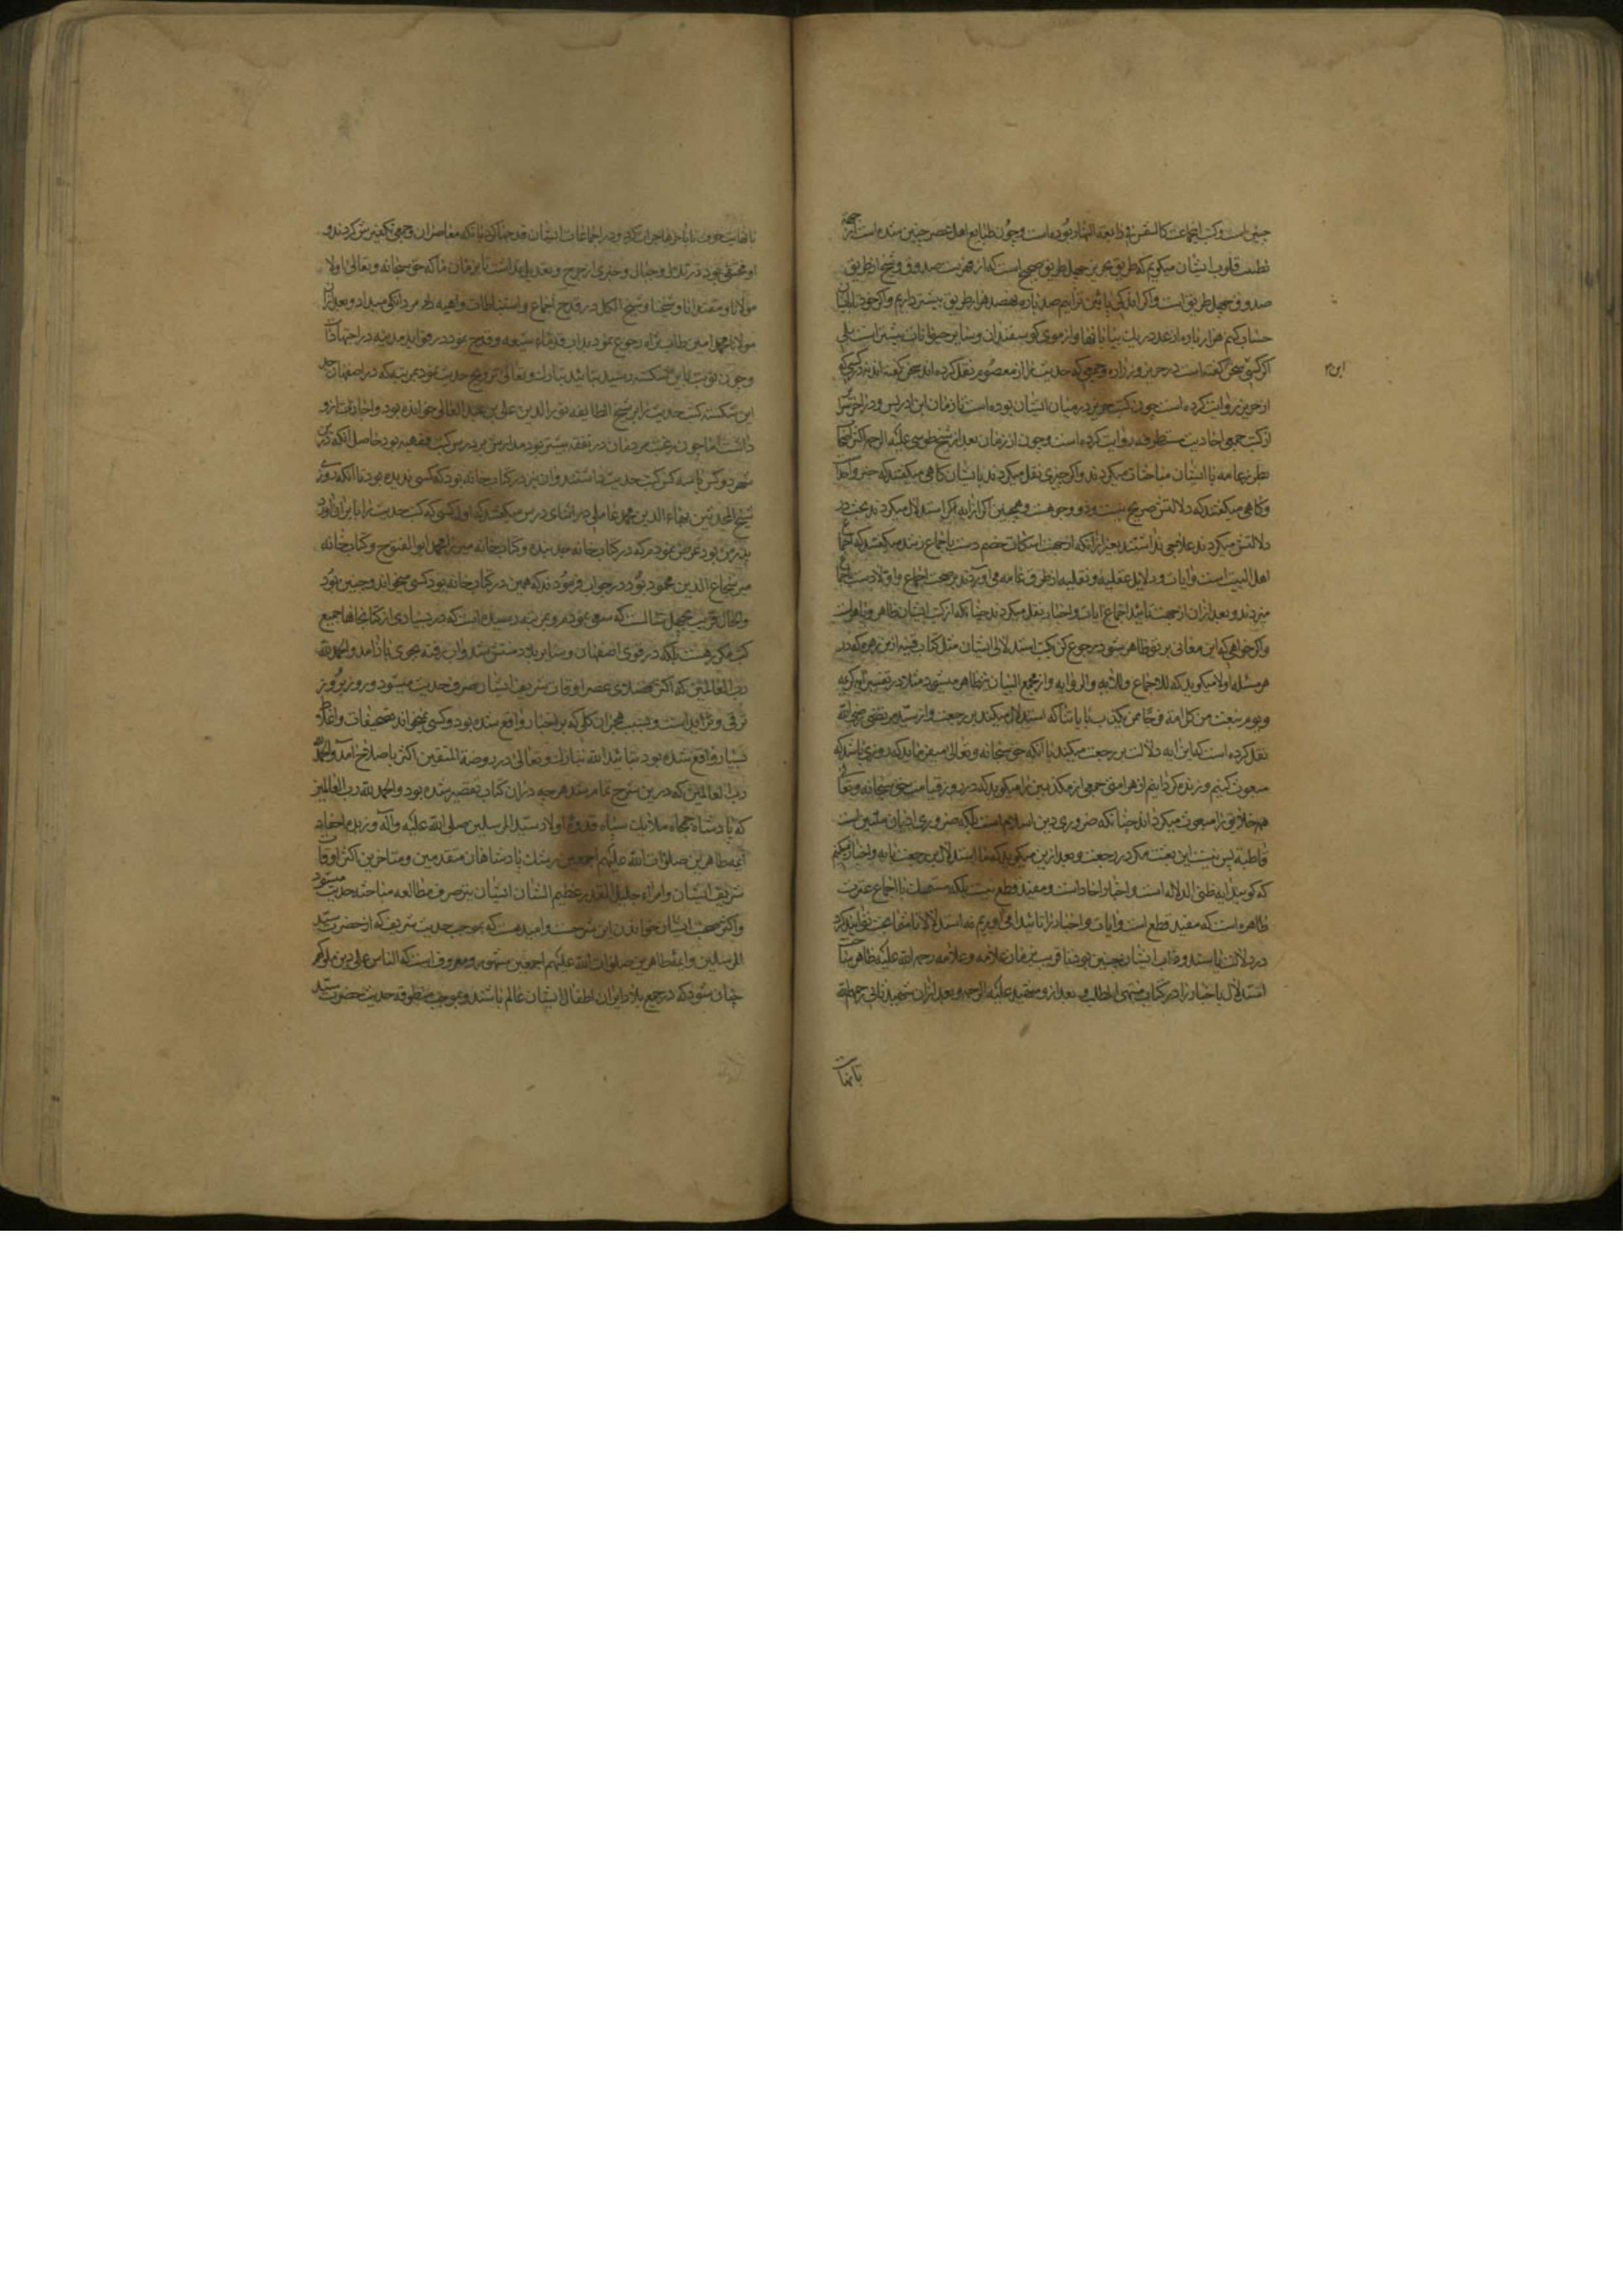 چنین است و کتب این جماعت کالشمس فی رابعة النهار بوده است و چون طبایع اهل عصر چنین شده است از جهة
قلوب ایشان میگویم که طریق بحریز چهل طریق صحیح است که از هر یک صدوق و شیخ از طریق
صدوق چهل طریق است و اگر اندکی پائین تر آیم صد بار هفصد هزار طریق بیشتر داریم و اگر خود با ایشان
حساب کنیم هزار باره از عدد ریک بیابانها و از موی کوسفندان و سایر حیوانات بیشتر است بلی
اگر کسی سخن گفته است در حریز و زراره و جمعی که حدیث را از معصوم نقل کرده اند سخن گفته اند نه در کسی که
ابن
از حریز روایت کرده است چون کتب حریز در میان ایشان بوده است تا زمان ابن ادریس و در آخر سرائر
از کتب جمعی احادیث مستطرفه روایت کرده است و چون از زمان بعد از شیخ طوسی علیه الرحمه اکثر
عامه با ایشان مباحثات میکردند و اگر خبری نقل میکردند با ایشان کاهی میکفتند که خبر واحد
و کاهی میکفتند که دلالتش صریح نیست و ذو وجوهست و همچنین اگر از آیه اگر استدلال میکردند بحث در
دلالتش میکردند علاجی نداشتند بغیر از آنکه از جهت اسکات خصم دست باجماع زنند میکفتند که اجماع
اهل البیت است و آیات و دلایل عقلیه و نقلیه از طرف عامه می آوردند بر صحت اجماع و اولا دست باجماع
میزدند و بعد از آن از جهت تأیید اجماع آیات و اخبار نقل میکردند چنانکه از کتب ایشان ظاهر و باهر است
و اگر خواهی که این معانی بر تو ظاهر شود رجوع کن بکتب استدلالی ایشان مثل کتاب غنیه ابن زهره که در
هر مسئله اولا میکوید که للاجماع و للآیه و الروایه و از مجمع البیان نیز ظاهر میشود مثلا در تفسیر آیه کریمه
و یوم نبعث من کل امة فوجا ممن یکذب بآیاتنا که استدلال میکند بر رجعت و از سید مرتضی رضی الله
نقل کرده است که این آیه دلالت بر رجعت میکند با آنکه حق سبحانه و تعالی میفرماید که روزی باشد که
مبعوث کنیم و زنده کردانیم از هر امتی جمعی از مکذبین را میکوید که در روز قیامت حق سبحانه و تعالی
همه خلایق را مبعوث میکرداند چنانکه ضروری دین اسلام است بلکه ضروری ادیان ملیین است
قاطبة پس نیست این بعثت مکر در رجعت و بعد ازین میکوید که ما استدلال بر رجعت بآیه و اخبار نمیکنیم
که کویند آیه ظنی الدلاله است و اخبار اخبار احاد است و مفید قطع نیست بلکه متمسک باجماع عترت
طاهره است که مفید قطع است و آیات و اخبار را تأیید می آوریم نه استدلالا تا شما بحث توانید کرد
در دلالت یا سند و دأب ایشان همچنین بود تا قریب بزمان علامه و علامه رحمه الله علیه ظاهر ساخت
استدلال باخبار را در کتاب منتهی المطلب و بعد از و شهید علیه الرحمه و بعد از آن شهید ثانی رحمه الله
تا نهایت خوف با آخرها جرات کرد و در اجماعات ایشان قدحها کرد با آنکه معاصران و جمعی تکفیرش کردند و
او مختفی بود در تلال و جبال و چیزی از جرح و تعدیل نداشت تا بزمان ما که حق سبحانه و تعالی اولا
مولانا و مقتدانا و شیخنا و شیخ الکل در قدح اجماع و استنباطات واهیه داد مردانکی میداد و بعد از آن
مولانا محمد امین طاب ثراه رجوع نمود بدأب قدماء شیعه و قدح نمود در فواید مدنیه در اجتهادات
و چون نوبت باین شکسته رسید بتأیید تبارک و تعالی ترویج حدیث نمود بمرتبه که در اصفهان جد
این شکسته کتب حدیث را بر شیخ الطایفه نور الدین علی بن عبد العالی خوانده بود و اجازت از و
داشت اما چون رغبت مردمان در فقه بیشتر بود مدارش بر درس کتب فقهیه بود حاصل آنکه درین
شهر دو کس یا سه کس کتب حدیث داشتند و آن نیز در کتاب خانه بود که کسی ندیده بود تا آنکه روزی
شیخ المحدثین بهاء الدین محمد عاملی در اثنای درس میکفتند که اول کسی که کتب حدیث را بایران آورد
پدر من بود عرض نمودم که در کتاب خانه جد بنده و کتاب خانه میرزا محمد ابو الفتوح و کتاب خانه
میر شجاع الدین محمود بود در جواب فرمودند که همین در کتاب خانه بود کسی نمیخواند و چنین بود
و الحال قریب بچهل سالست که سعی نمودم و بمرتبه رسیده است که در بسیاری از کتابخانها جمیع
کتب مکرر هست بلکه در قری اصفهان و سایر بلاد منتشر شد و آب رفته بجوی باز آمد و الحمد لله
رب العالمین که اکثر فضلای عصر اوقات شریف ایشان صرف حدیث میشود و روز بروز
در ترقی و تزاید است و بسبب هجران کلی که بر اخبار واقع شده بود و کسی نمیخواند تصحیفات و اغلاط
بسیار واقع شده بود بتأیید الله تبارک و تعالی در روضة المتقین اکثر باصلاح آمد و الحمد لله
رب العالمین که درین شرح تمام شد هر چه در آن کتاب تقصیر شده بود و الحمد لله رب العالمین
که پادشاه جمجاه ملایک سپاه قدوه اولاد سید المرسلین صلی الله علیه و آله و زبده احفاد
ائمه طاهرین صلوات الله علیهم اجمعین برشک پادشاهان متقدمین و متاخرین اکثر اوقات
شریف ایشان و امراء جلیل القدر عظیم الشان ایشان نیز صرف مطالعه مباحثه حدیث میشود
و اکثر صحبت ایشان خواندن این شرحست و امید هست که بموجب حدیث شریف که از حضرت سید
المرسلین و ائمه طاهرین صلوات الله علیهم اجمعین مشهور و معروف است که الناس علی دین ملوکهم
چنان شود که در جمیع بلاد ایران اطفال ایشان عالم باشند و بموجب منطوقه حدیث حضرت سید